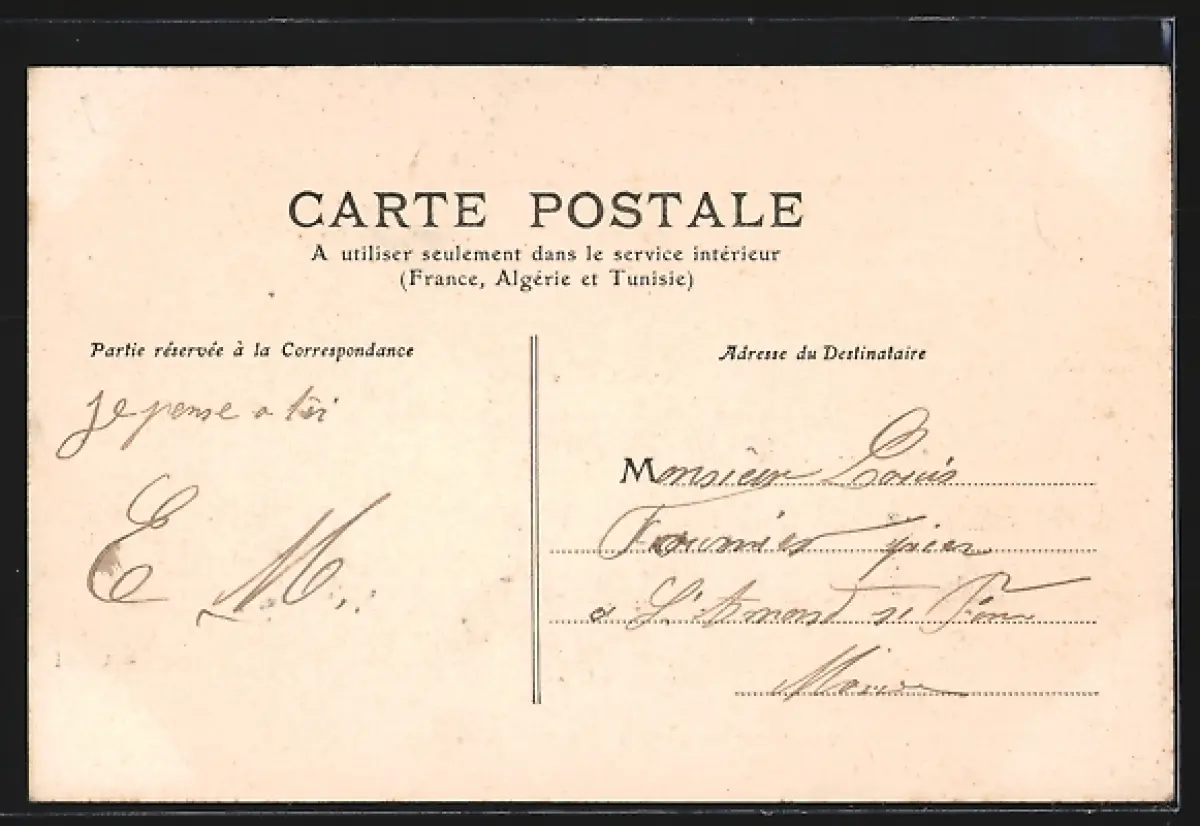 CARTE POSTALE
A utiliser seulement dans le service intérieur
(France, Algérie et Tunisie)
Partie réservée à la Correspondance
je pense a toi
E M.
Adresse du Destinataire
Monsieur Louis
Fournier
a St Amand s/ Fion
Marne